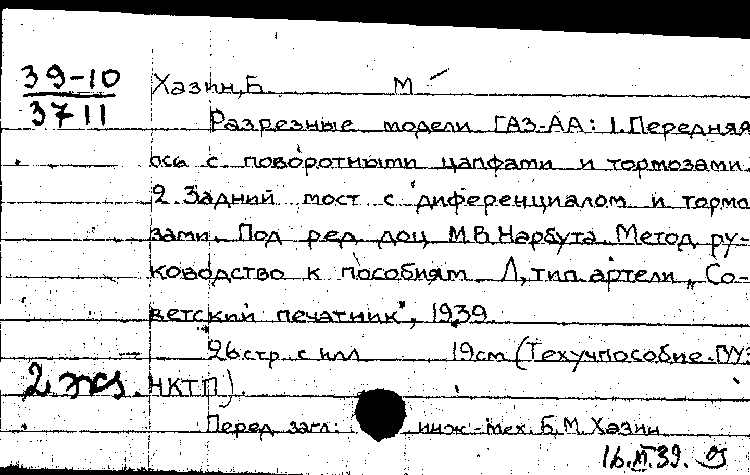 39-10
37 11
Хазин, Б. М
Разрезные модели ГАЗ-АА: 1. Передняя
ось с поворотными цапфами и тормозами.
2. Задний мост с диференциалом и тормо
зами. Под ред. доц. М.В. Нарбута. Метод. ру-
ководство к пособиям. Л, тип. артели „Со-
ветский печатник", 1939.
26 стр. с илл. 19 см (Техучпособие. ГУУЗ
2 экз. НКТП).
Перед загл: инж-мех. Б.М. Хазин
16.XI.39.